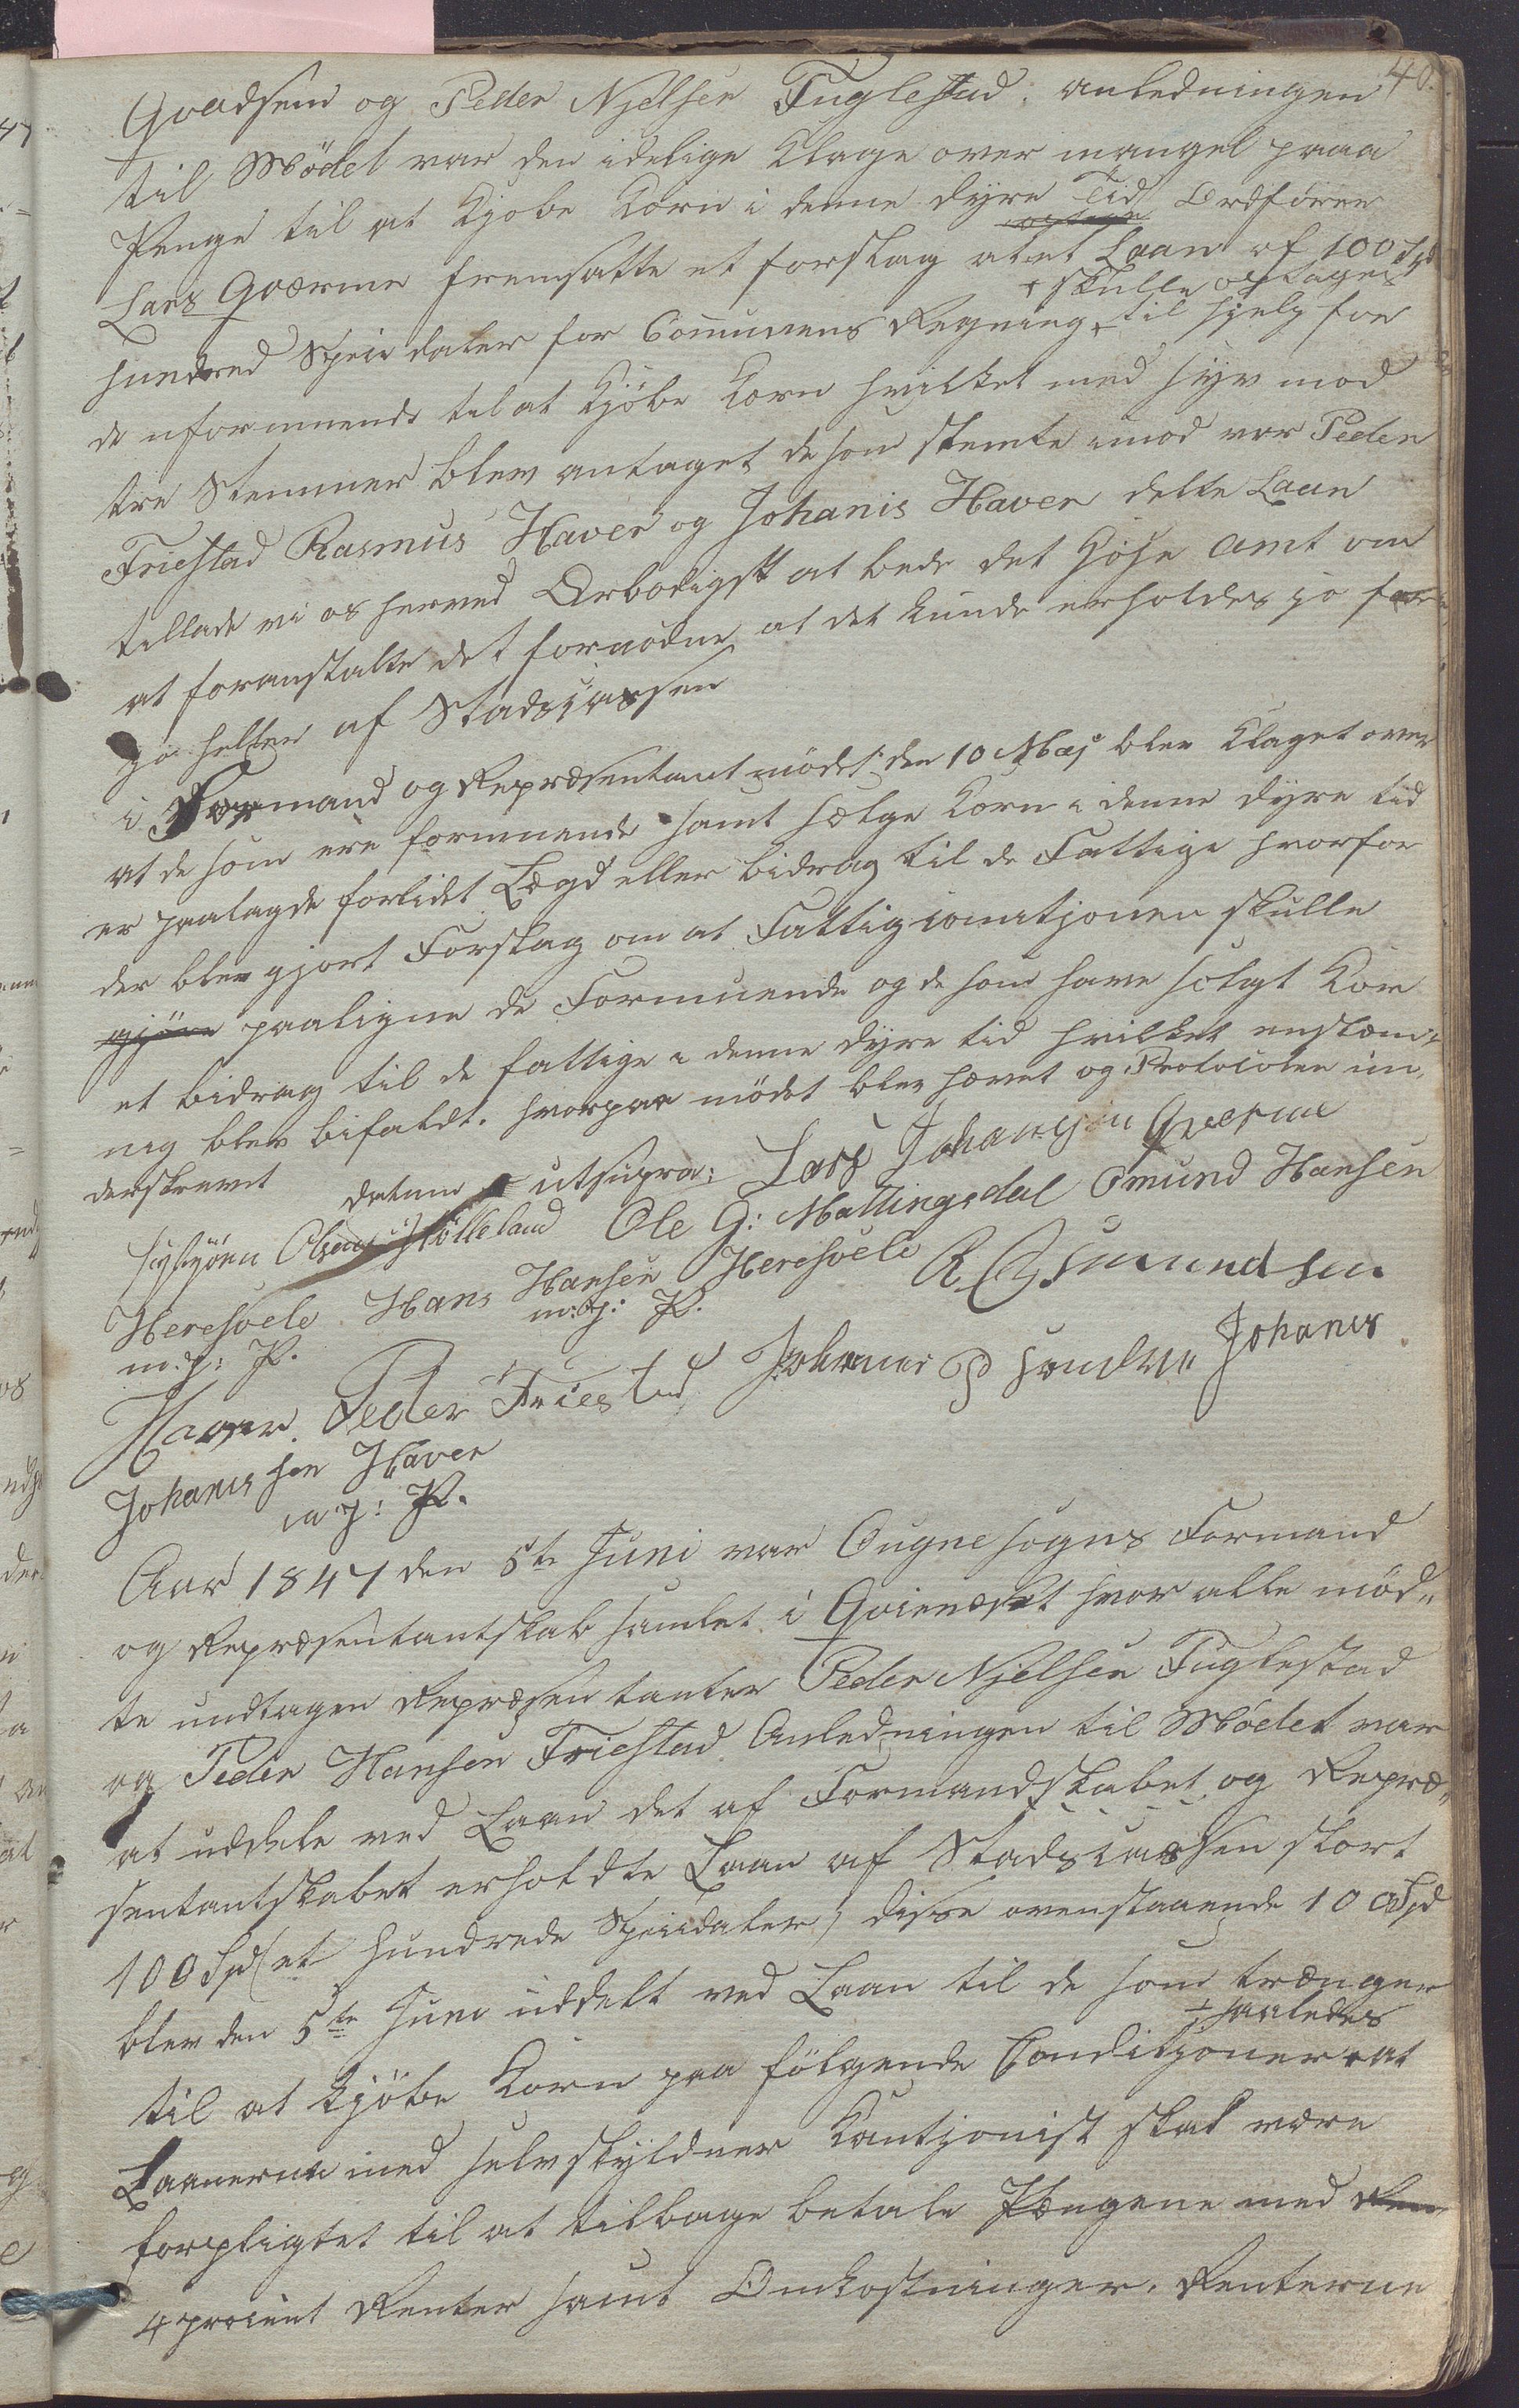 40.
Qvadsem og Peder Njelsen Fuglestad. anledningen
til Mödet var den idelige Klage over mangel paaa
Penge til at Kjobe Korn i denne dyre Tid Ordförer
Lars Qværme fremsatte et forslag at et Laan af 100 Spd
+ skulle optages
hundred Speciedaler for Communens Regning + til hjelp for
de uformuende til at kjöbe Korn hvilket med syv mod
tre Stemmer blev antaget de som stemte imod var Peder
Friestad Rasmus Haver og Johanis Haver dette Laan
tillade vi os herved Ærbodigst at bede det höje Amt om
at foranstalte det fornödne at det kunde erholdes jo för
jo heller af Stadscassen
i Formand og Repræsentant mödet den 10 Maj blev Klaget over
at de som ere formuende samt sælge Korn i denne dyre tid
er paalagde forlidet Lægd eller bidrag til de Fattige hvorfor
der blev gjort Forslag om at Fattigcomitsjonen skulle
gjöre paaligne de Formuende og de som have solgt Kor
et bidrag til de fattige i denne dyre tid hvilket enstæm-
nig blev bifaldt. hvorpaa mödet blev hævet og Protocolen un-
derskrevet datum utsupra: Lars Johanesen Qværme
Sigbjörn Olsen Hölleland Ole G: Mattingsdal Omund Hansen
Heresvele Hans Hansen Heresvele R Asmundsen
m: f: P. m: f: P.
Haver. Peder Friestad Johannes P Johanes
Johanes sen Haver
m: f: P.
Aar 1847 den 5te Juni var Ougne Sogns Formand
og Repræsentantskab samlet i Qvienæset hvor alle möd"
te undtagen Repræsentanter Peder Njelsen Fuglestad
og Peder Hansen Friestad Anledningen til Mödet var
at uddele ved Laan det af Formandskabet og Repræ"
sentantskabet erholdte Laan af Stadscassen stort
100 Spd (et hundrede Speciedaler) disse ovenstaaende 100 Spd
blev den 5te Juni uddelt ved Laan til de som trænger
+ saaledes
til at kjöbe Korn paa fölgende Conditjoner + at
Laanerne med selvskyldner Kautjonist skal være
forpligtet til at tilbage betale Pengene med Ren
4 procent Renter samt Omkostninger. Renterne